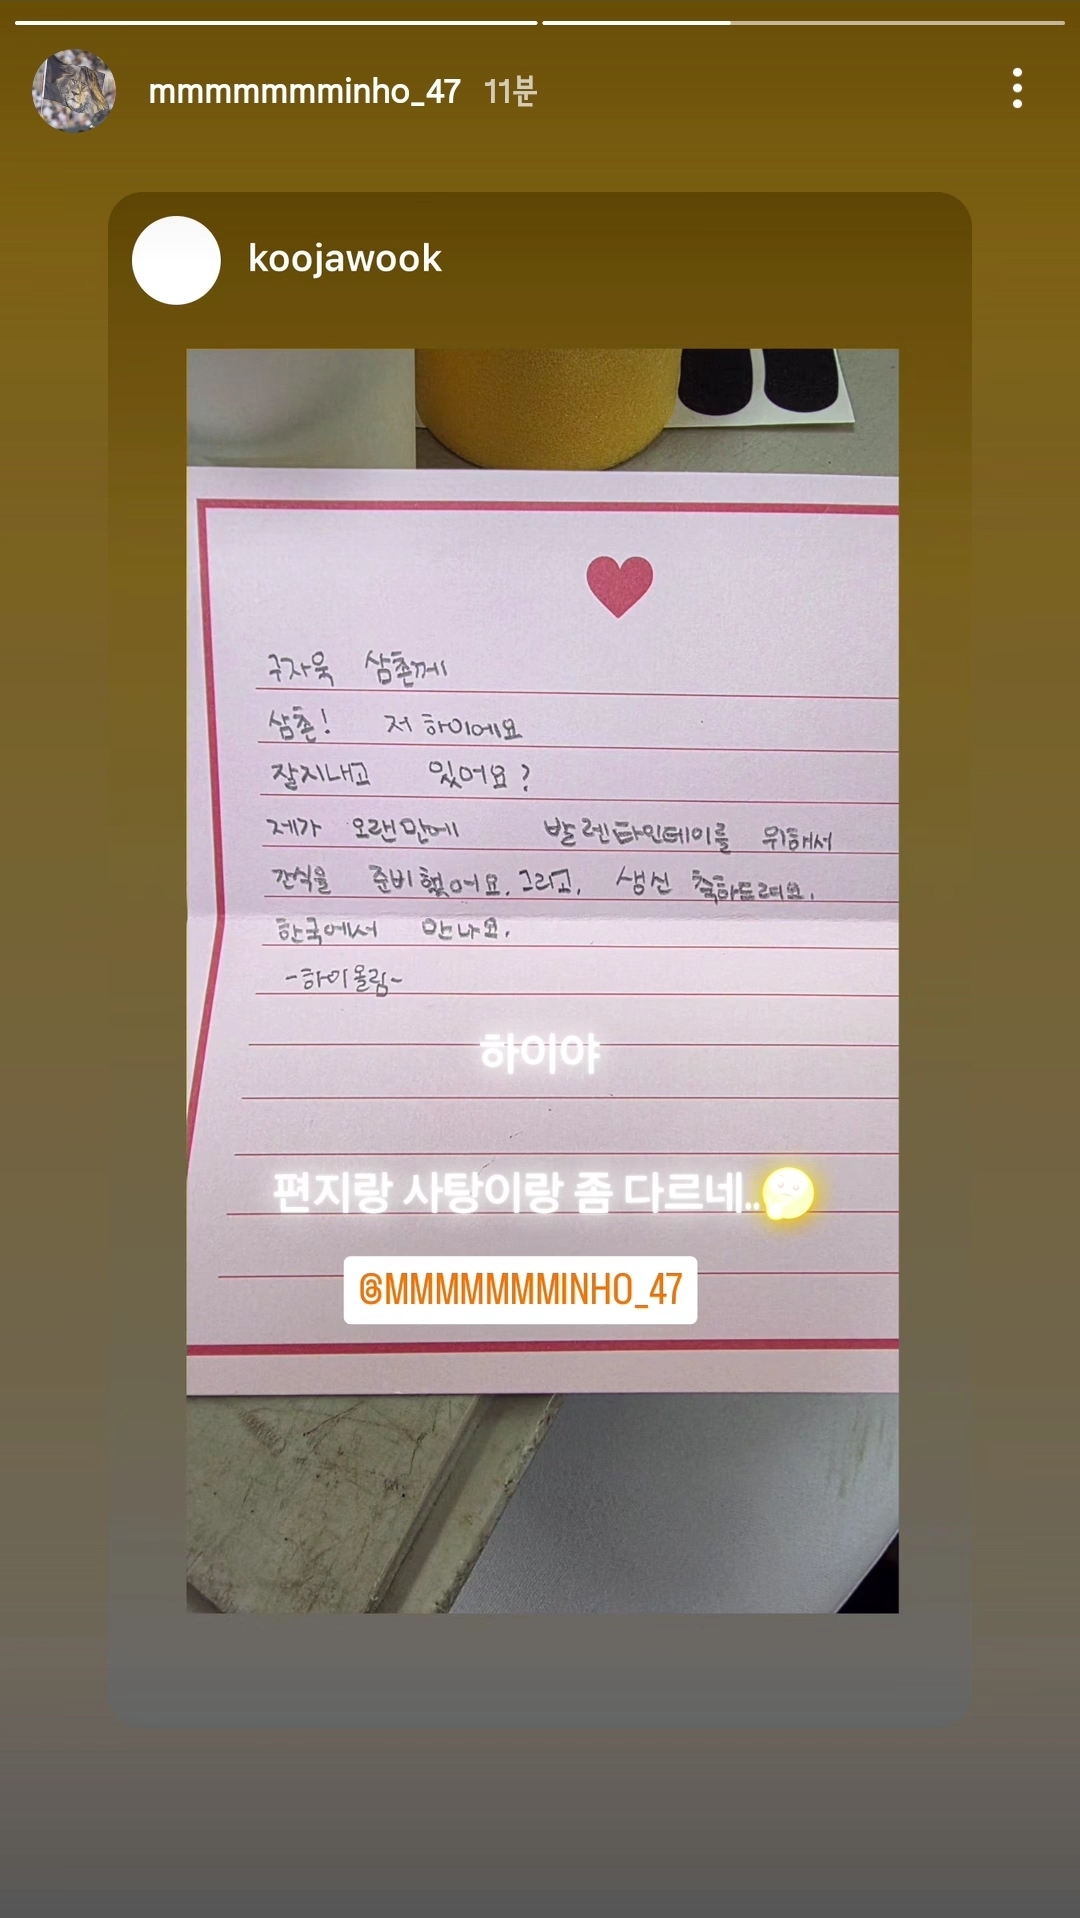 mmmmmmminho_47 11분
koojawook
구자욱 삼촌께
삼촌! 저 하이에요
잘지내고 있어요?
제가 오랜만에 발렌타인데이를 위해서
간식을 준비했어요. 그리고, 생신 축하드려요.
한국에서 만나요.
-하이올림-
하이야
편지랑 사탕이랑 좀 다르네..🤔
@MMMMMMMINHO_47